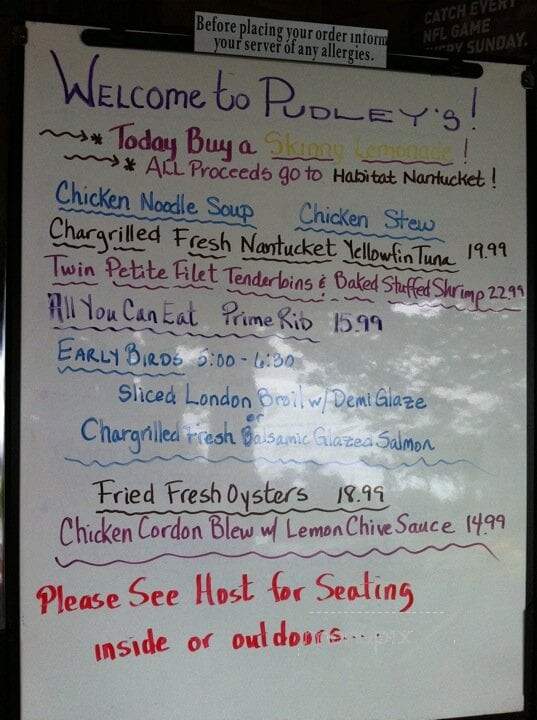 CATCH EVERY
NFL GAME
EVERY SUNDAY.
Before placing your order inform
your server of any allergies.
WELCOME to PUDLEY'S!
* Today Buy a Skinny Lemonade!
* ALL Proceeds go to Habitat Nantucket!
Chicken Noodle Soup Chicken Stew
Chargrilled Fresh Nantucket Yellowfin Tuna 19.99
Twin Petite Filet Tenderloins & Baked Stuffed Shrimp 22.99
All You Can Eat Prime Rib 15.99
EARLY BIRDS 5:00 - 6:30
Sliced London Broil w/ Demi Glaze
or
Chargrilled Fresh Balsamic Glazed Salmon
Fried Fresh Oysters 18.99
Chicken Cordon Blew w/ Lemon Chive Sauce 14.99
Please See Host for Seating
inside or outdoors....